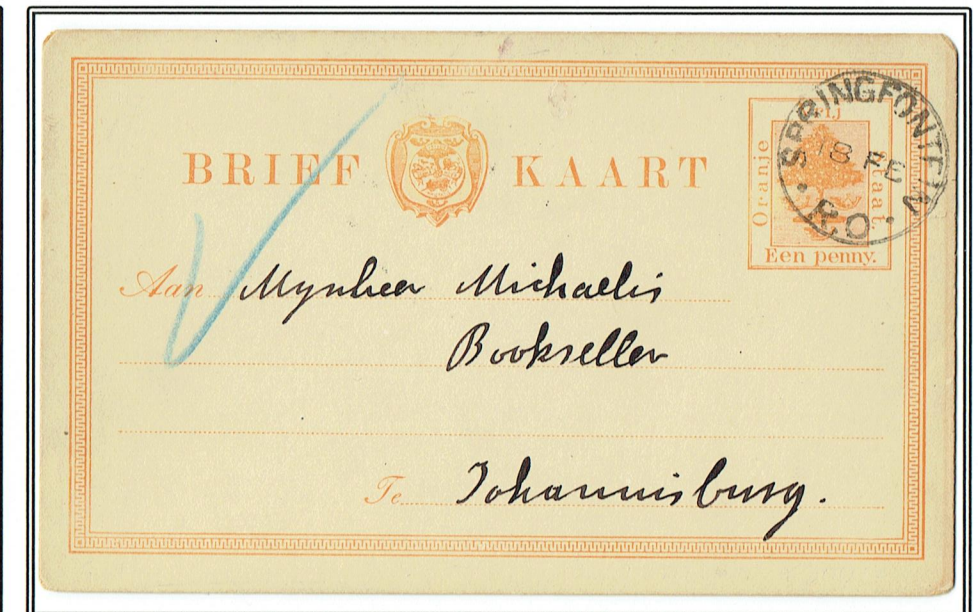 BRIEF KAART
Oranje Vrij Staat
Een penny.
SPRINGFONTEIN
18 FE
R.O
Aan Mynheer Michaelis
Bookseller
Te Johannisburg.